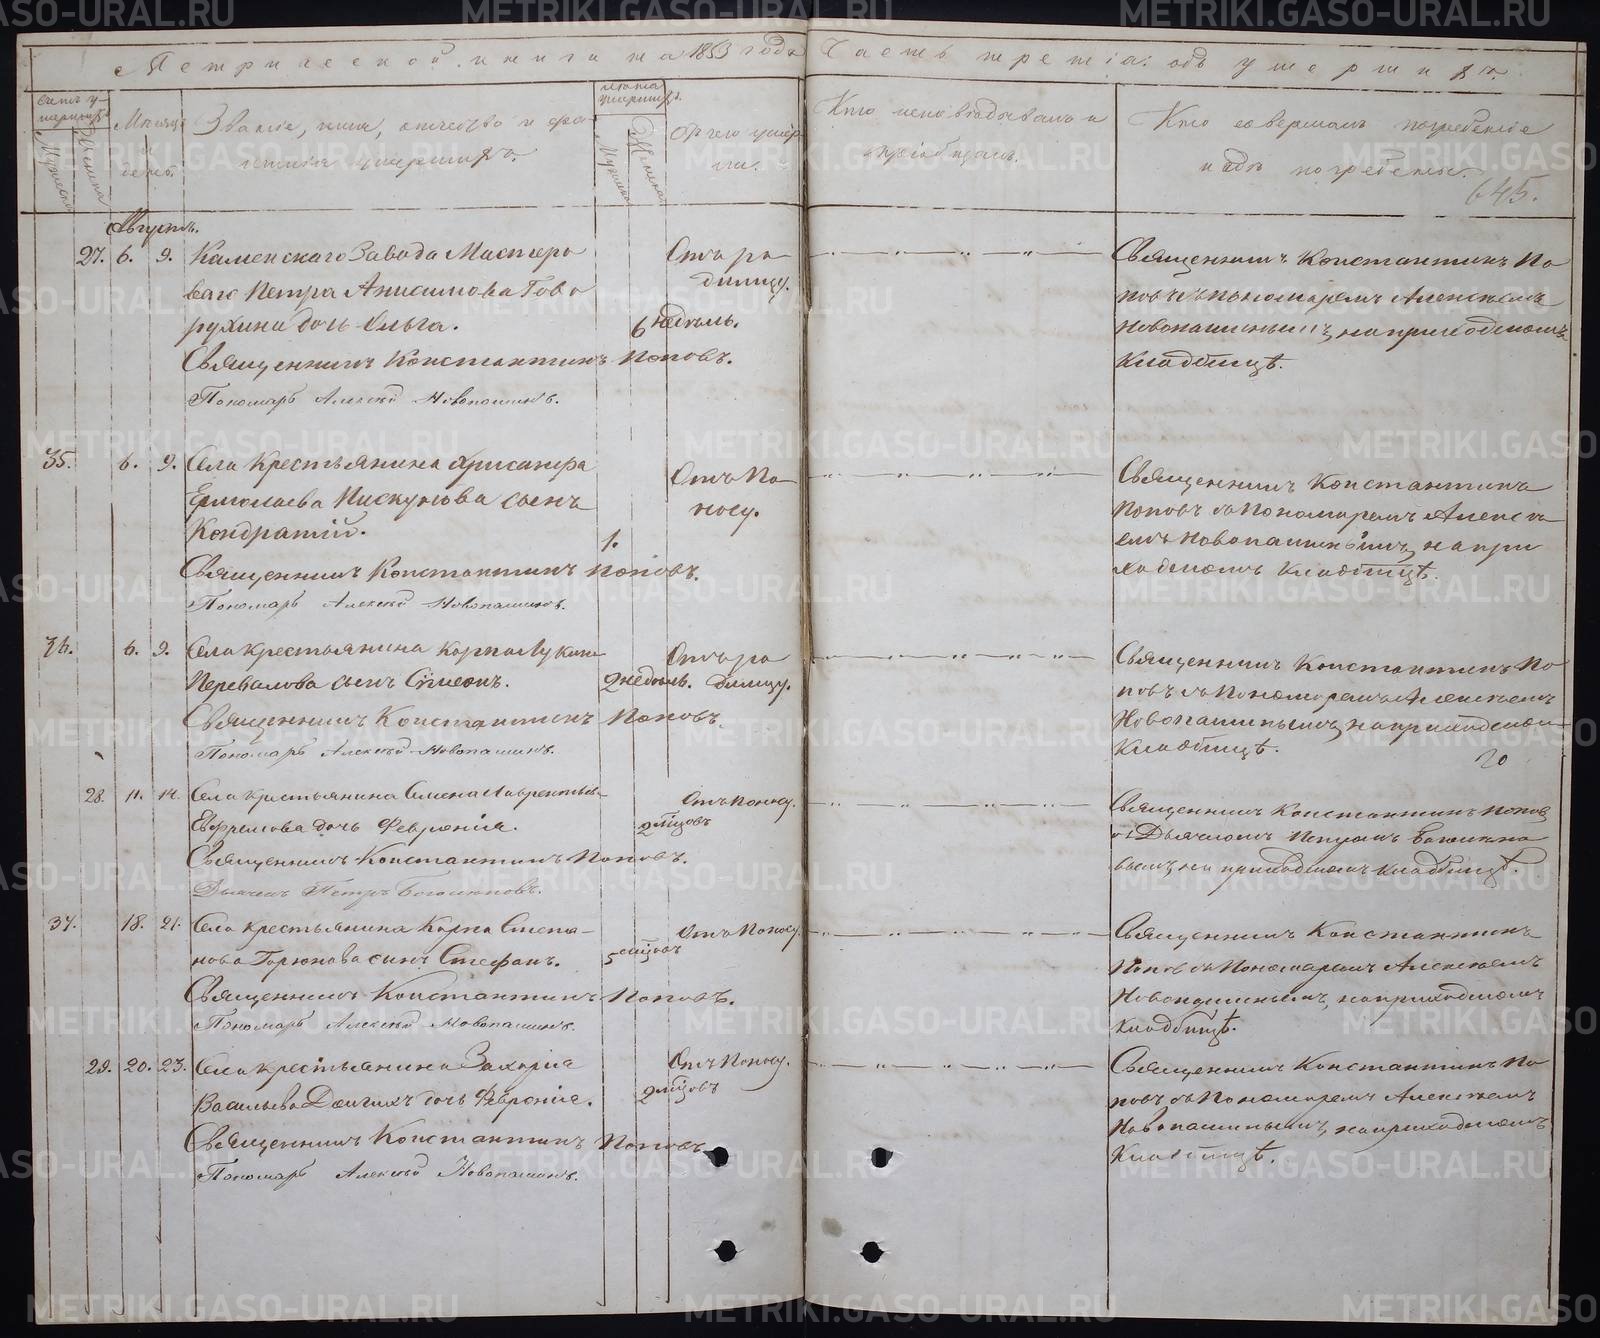 Метрической книги на 1853 годъ
Часть третія: объ умершихъ.
Счетъ умершихъ.
Мужеска
Женска
Мѣсяцъ и день.
Званіе, имя, отчество и фамилія умершихъ.
Лѣта умершихъ.
Мужеска
Женска
Отъ чего умерли.
Кто исповѣдывалъ и пріобщалъ.
Кто совершалъ погребеніе и гдѣ погребены.
645.
Августъ.
27. 6. 9. Каменскаго Завода Мастеро
ваго Петра Анисимова Гово
рухина дочь Ольга.
6 недѣль.
Отъ ро
димцу.
Священникъ Константинъ По
повъ съ Пономаремъ Алексѣемъ
Новопашинымъ, на приходскомъ
Кладбищѣ.
Священникъ Константинъ Поповъ.
Пономарь Алексѣй Новопашинъ.
35. 6. 9. Села Крестьянина Хрисанфа
Ермолаева Пискунова сынъ
Кондратій.
1.
Отъ По
носу.
Священникъ Константинъ
Поповъ съ Пономаремъ Алексѣ
емъ Новопашинымъ, на при
ходскомъ Кладбищѣ.
Священникъ Константинъ Поповъ.
Пономарь Алексѣй Новопашинъ.
36. 6. 9. Села Крестьянина Карпа Лукина
Перевалова сынъ Сѵмеонъ.
2 недѣль.
Отъ ро
димцу.
Священникъ Константинъ По
повъ съ Пономаремъ Алексѣемъ
Новопашинымъ, на приходском
Кладбищѣ.
20
Священникъ Константинъ Поповъ.
Пономарь Алексѣй Новопашинъ.
28. 11. 14. Села крестьянина Семена Лаврентьева
Ефремова дочь Феѵронія.
2 мцовъ
Отъ Поносу.
Священникъ Константинъ Попов
съ Дьячкомъ Петромъ
на приходскомъ Кладбищѣ.
Священникъ Константинъ Поповъ.
Дьячекъ Петръ
37. 18. 21. Села крестьянина Карпа Степа-
нова Горюнова сынъ Стефанъ.
5 мцовъ
Отъ Поносу.
Священникъ Константинъ
Попов съ Пономаремъ Алексѣемъ
Новопашинымъ, на приходскомъ
Кладбищѣ.
Священникъ Константинъ Поповъ.
Пономарь Алексѣй Новопашинъ.
29. 20. 23. Села крестьянина Захаріа
Васильева Долгихъ дочь Феѵроніа.
2 мцовъ
Отъ Поносу.
Священникъ Константинъ По
повъ съ Пономаремъ Алексѣемъ
Новопашинымъ, на приходскомъ
Кладбищѣ.
Священникъ Константинъ Поповъ.
Пономарь Алексѣй Новопашинъ.
METRIKI.GASO-URAL.RU